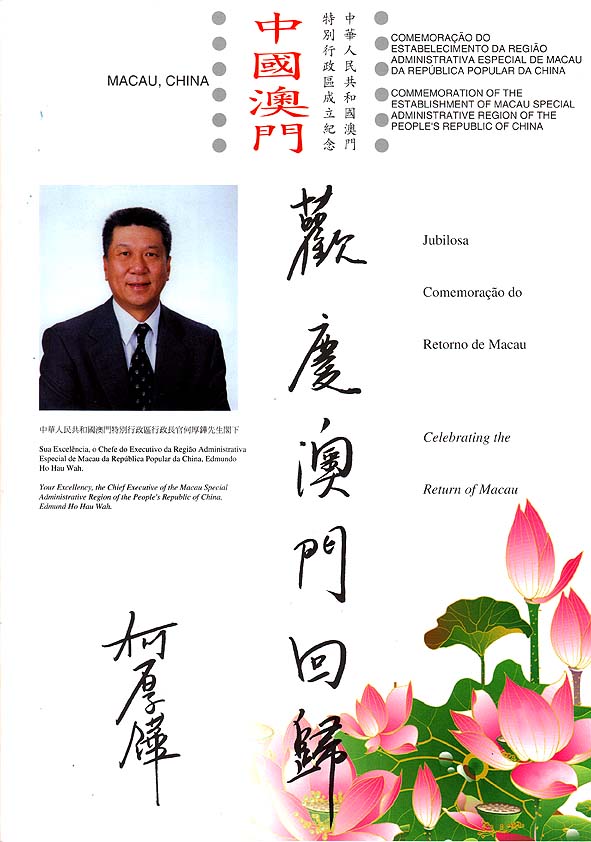 MACAU, CHINA
中國澳門
中華人民共和國澳門
特別行政區成立紀念
COMEMORAÇÃO DO
ESTABELECIMENTO DA REGIÃO
ADMINISTRATIVA ESPECIAL DE MACAU
DA REPÚBLICA POPULAR DA CHINA
COMMEMORATION OF THE
ESTABLISHMENT OF MACAU SPECIAL
ADMINISTRATIVE REGION OF THE
PEOPLE'S REPUBLIC OF CHINA
歡慶澳門回歸
Jubilosa
Comemoração do
Retorno de Macau
Celebrating the
Return of Macau
中華人民共和國澳門特別行政區行政長官何厚鏵先生閣下
Sua Excelência, o Chefe do Executivo da Região Administrativa
Especial de Macau da República Popular da China, Edmundo
Ho Hau Wah.
Your Excellency, the Chief Executive of the Macau Special
Administrative Region of the People's Republic of China,
Edmund Ho Hau Wah.
何厚鏵